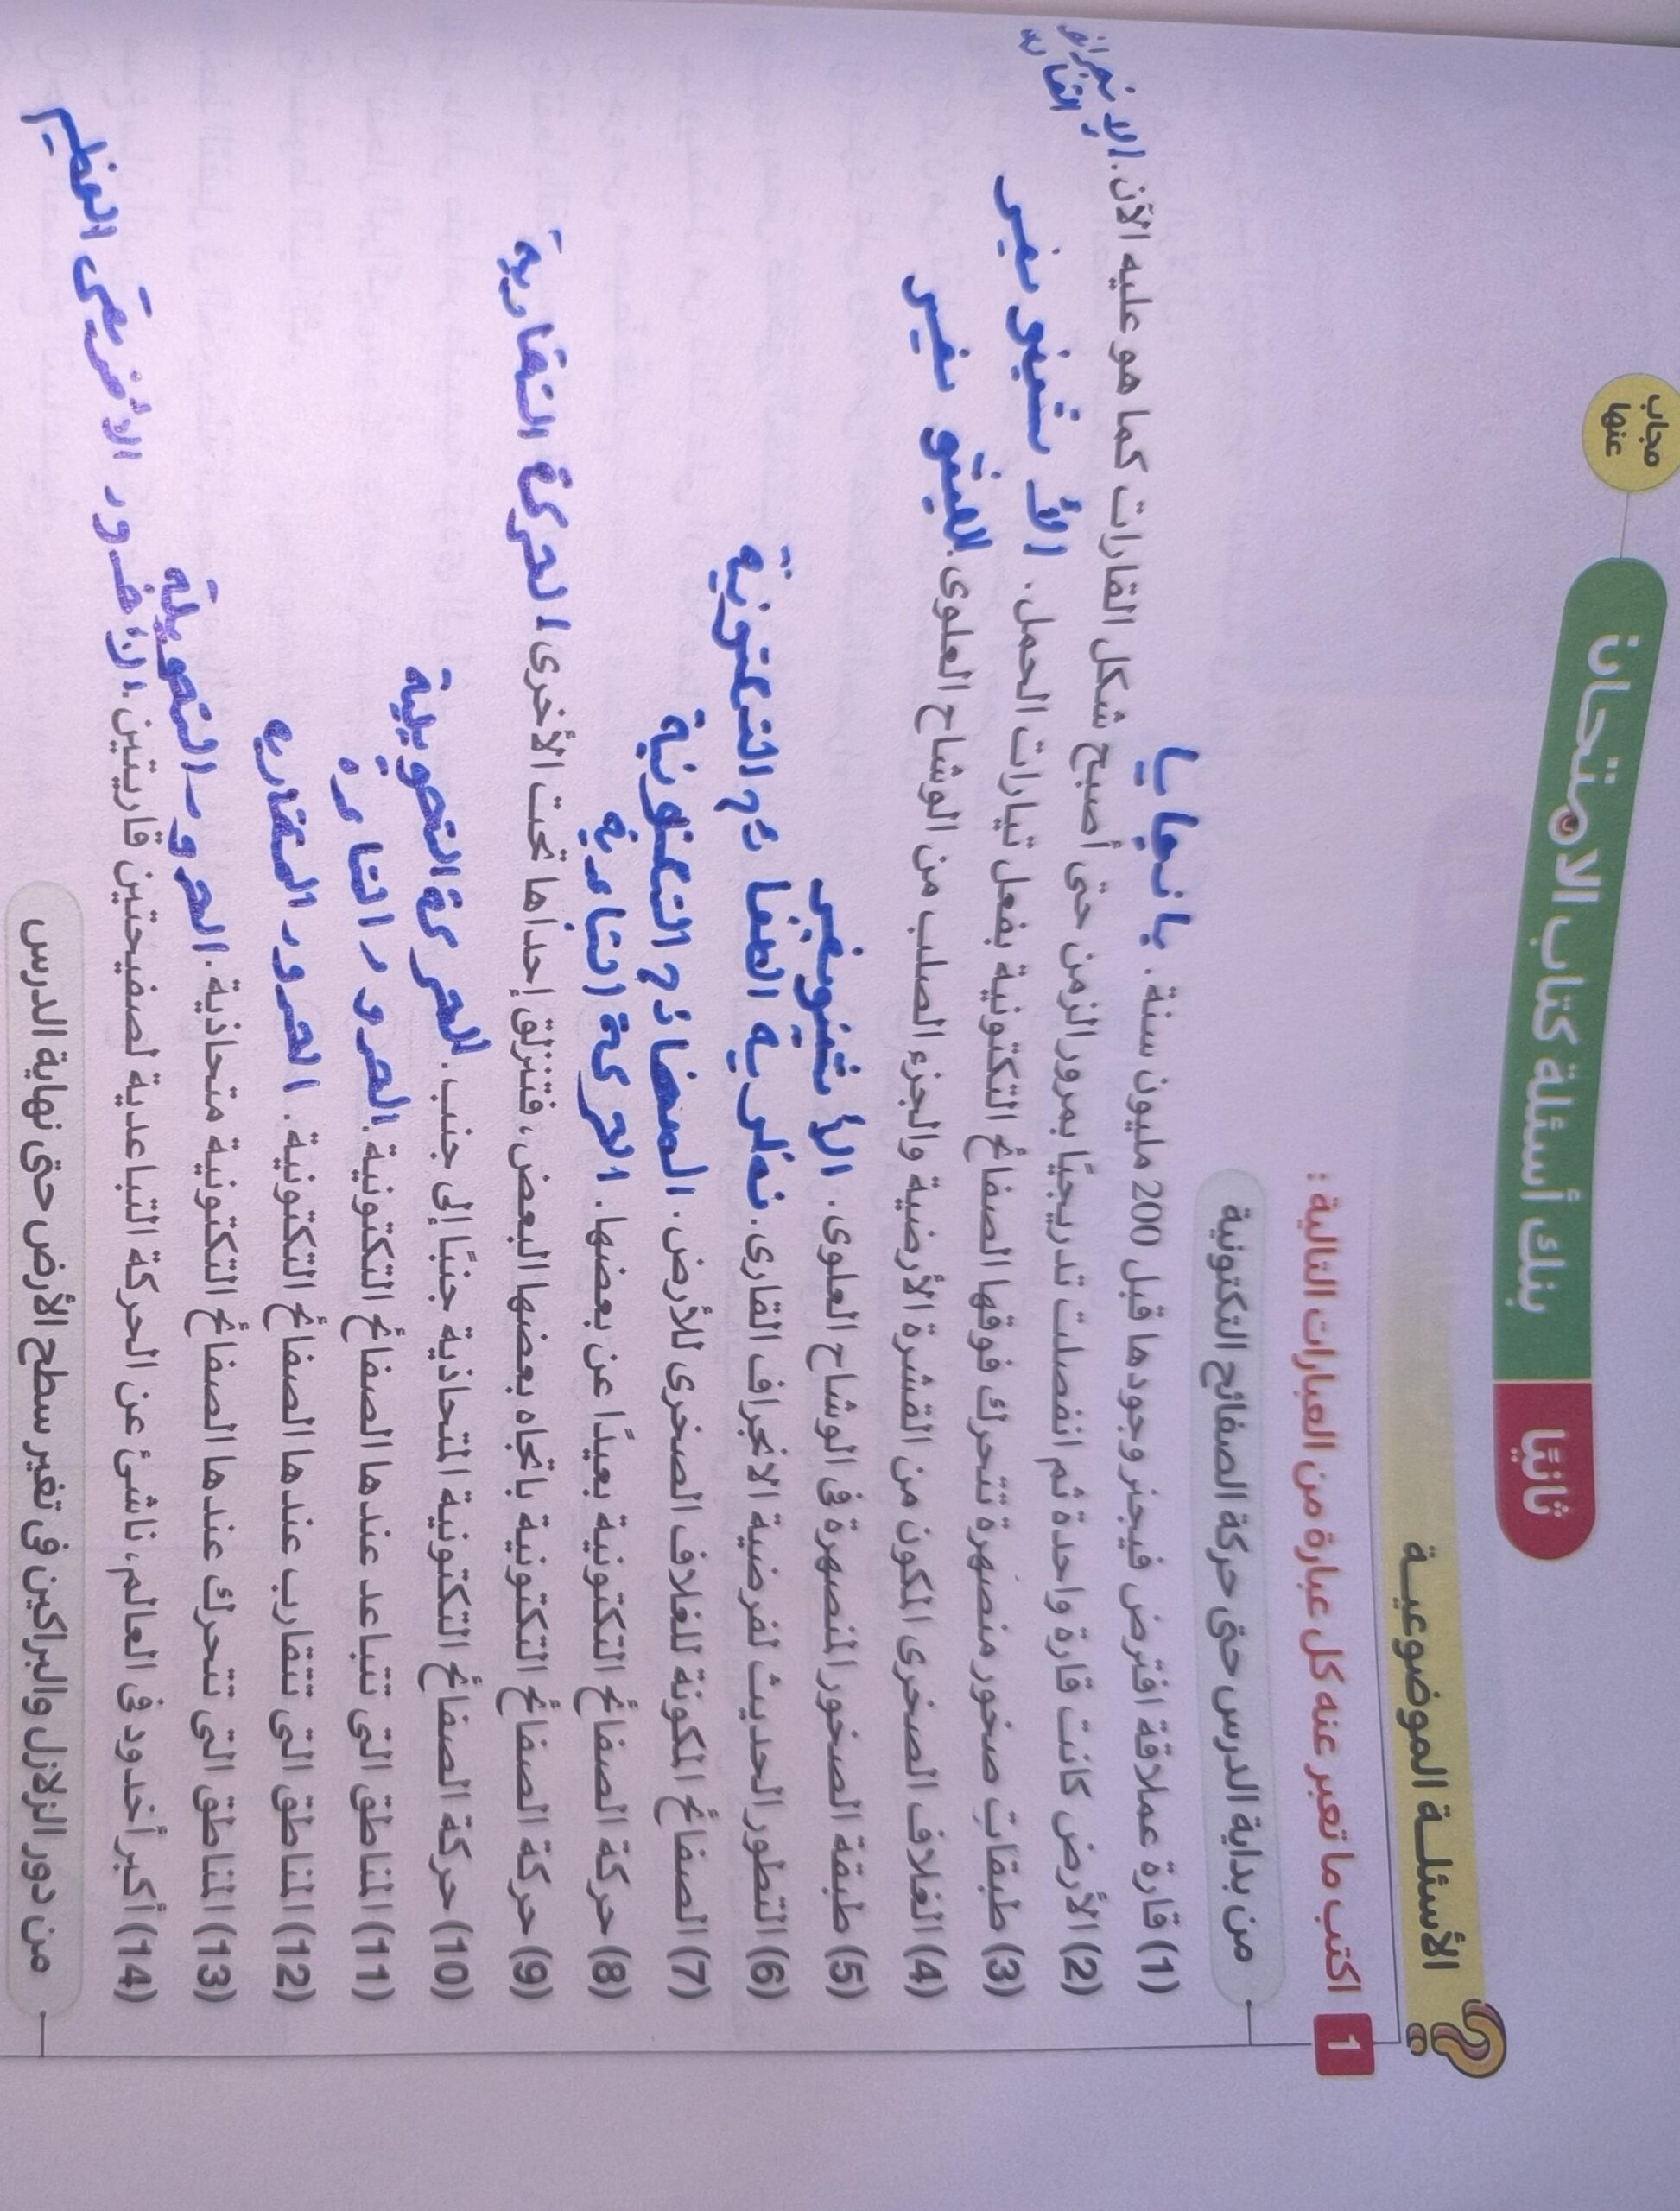 مجاب عنها
ثانيًا بنك أسئلة كتاب الامتحان
الأسئلـة الموضوعيـة
1 اكتب ما تعبر عنه كل عبارة من العبارات التالية :
من بداية الدرس حتى حركة الصفائح التكتونية
(1) قارة عملاقة افترض فيجنر وجودها قبل 200 مليون سنة. بانجايا
(2) الأرض كانت قارة واحدة ثم انفصلت تدريجيًا بمرور الزمن حتى أصبح شكل القارات كما هو عليه الآن. الانجراف القارى
(3) طبقات صخور منصهرة تتحرك فوقها الصفائح التكتونية بفعل تيارات الحمل. الأسثينوسفير
(4) الغلاف الصخرى المكون من القشرة الأرضية والجزء الصلب من الوشاح العلوى. الليثوسفير
(5) طبقة الصخور المنصهرة فى الوشاح العلوى. الأسثينوسفير
(6) التطور الحديث لفرضية الانجراف القارى. نظرية الصفائح التكتونية
(7) الصفائح المكونة للغلاف الصخرى للأرض. الصفائح التكتونية
(8) حركة الصفائح التكتونية بعيدًا عن بعضها. الحركة التباعدية
(9) حركة الصفائح التكتونية باتجاه بعضها البعض، فتنزلق إحداها تحت الأخرى. الحركة التقاربية
(10) حركة الصفائح التكتونية المتحاذية جنبًا إلى جنب. الحركة التحويلية
(11) المناطق التى تتباعد عندها الصفائح التكتونية. الحدود
(12) المناطق التى تتقارب عندها الصفائح التكتونية. الحدود
(13) المناطق التى تتحرك عندها الصفائح التكتونية متحاذية. الحدود التحويلية
(14) أكبر أخدود فى العالم، ناشئ عن الحركة التباعدية لصفيحتين قاريتين. الأخدود الأفريقى العظيم
من دور الزلازل والبراكين فى تغير سطح الأرض حتى نهاية الدرس